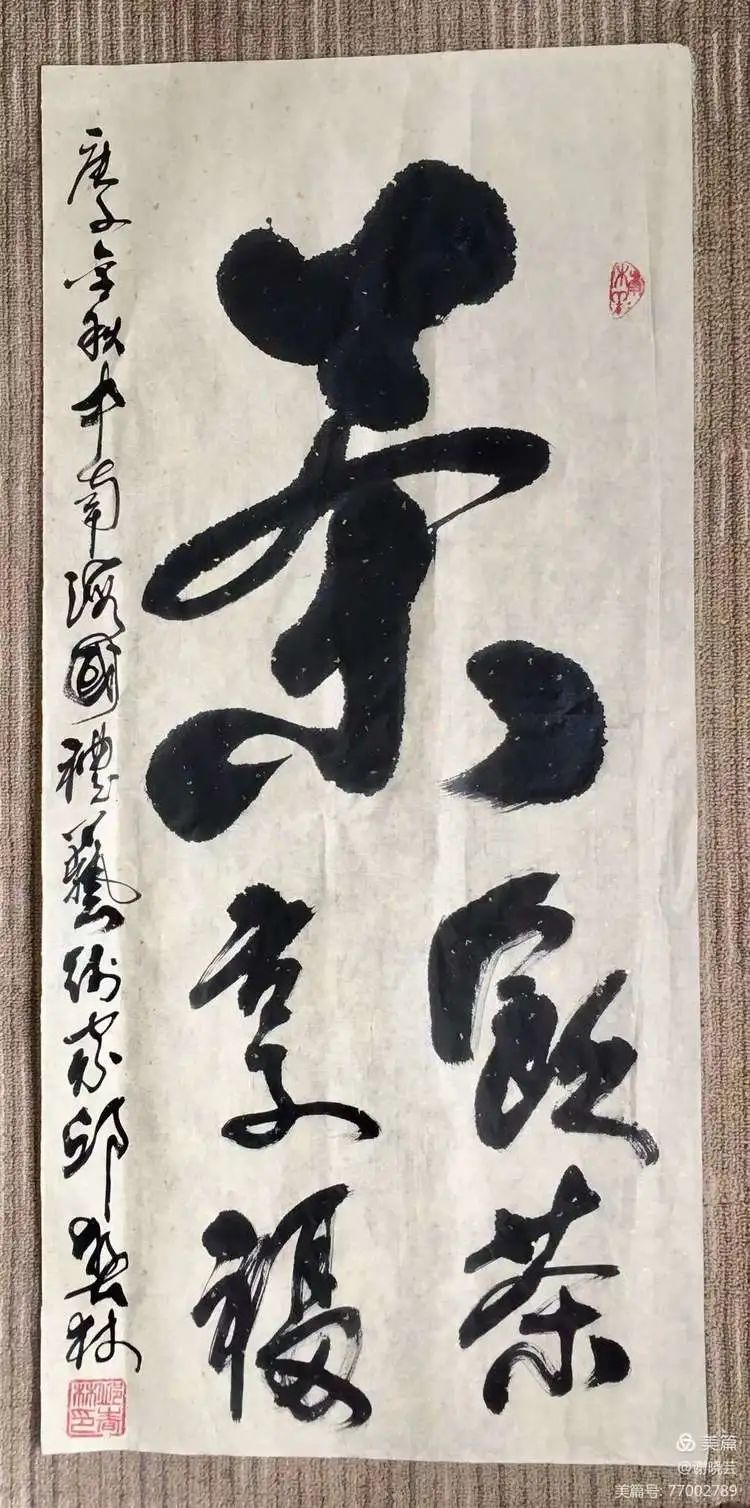 茶
飲茶
享福
庚子金秋中南海國禮藝術家邱春林
邱春林印
美篇
@谢晓芸
美篇号: 77002789